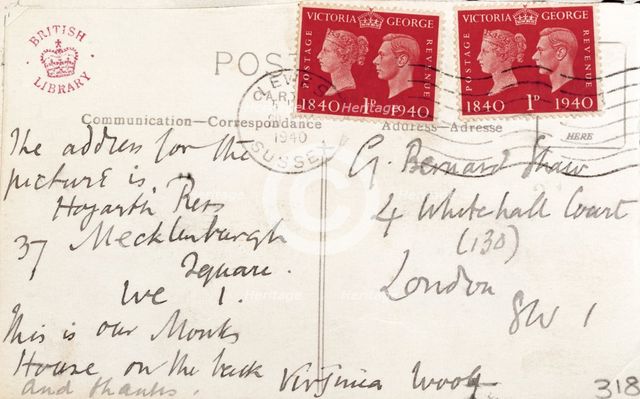 BRITISH
LIBRARY
POST
VICTORIA GEORGE
POSTAGE
REVENUE
1840 1D 1940
VICTORIA GEORGE
POSTAGE
REVENUE
1840 1D 1940
LEWES
1940
SUSSEX
Communication—Correspondence
Address—Adresse
HERE
The address for the
picture is
Hogarth Press
37 Mecklenburgh
Square.
WC 1.
This is our Monks
House, on the back
and thanks.
Virginia Woolf
G. Bernard Shaw
4 Whitehall Court
(130)
London
SW 1
318
Heritage
Heritage
Heritage